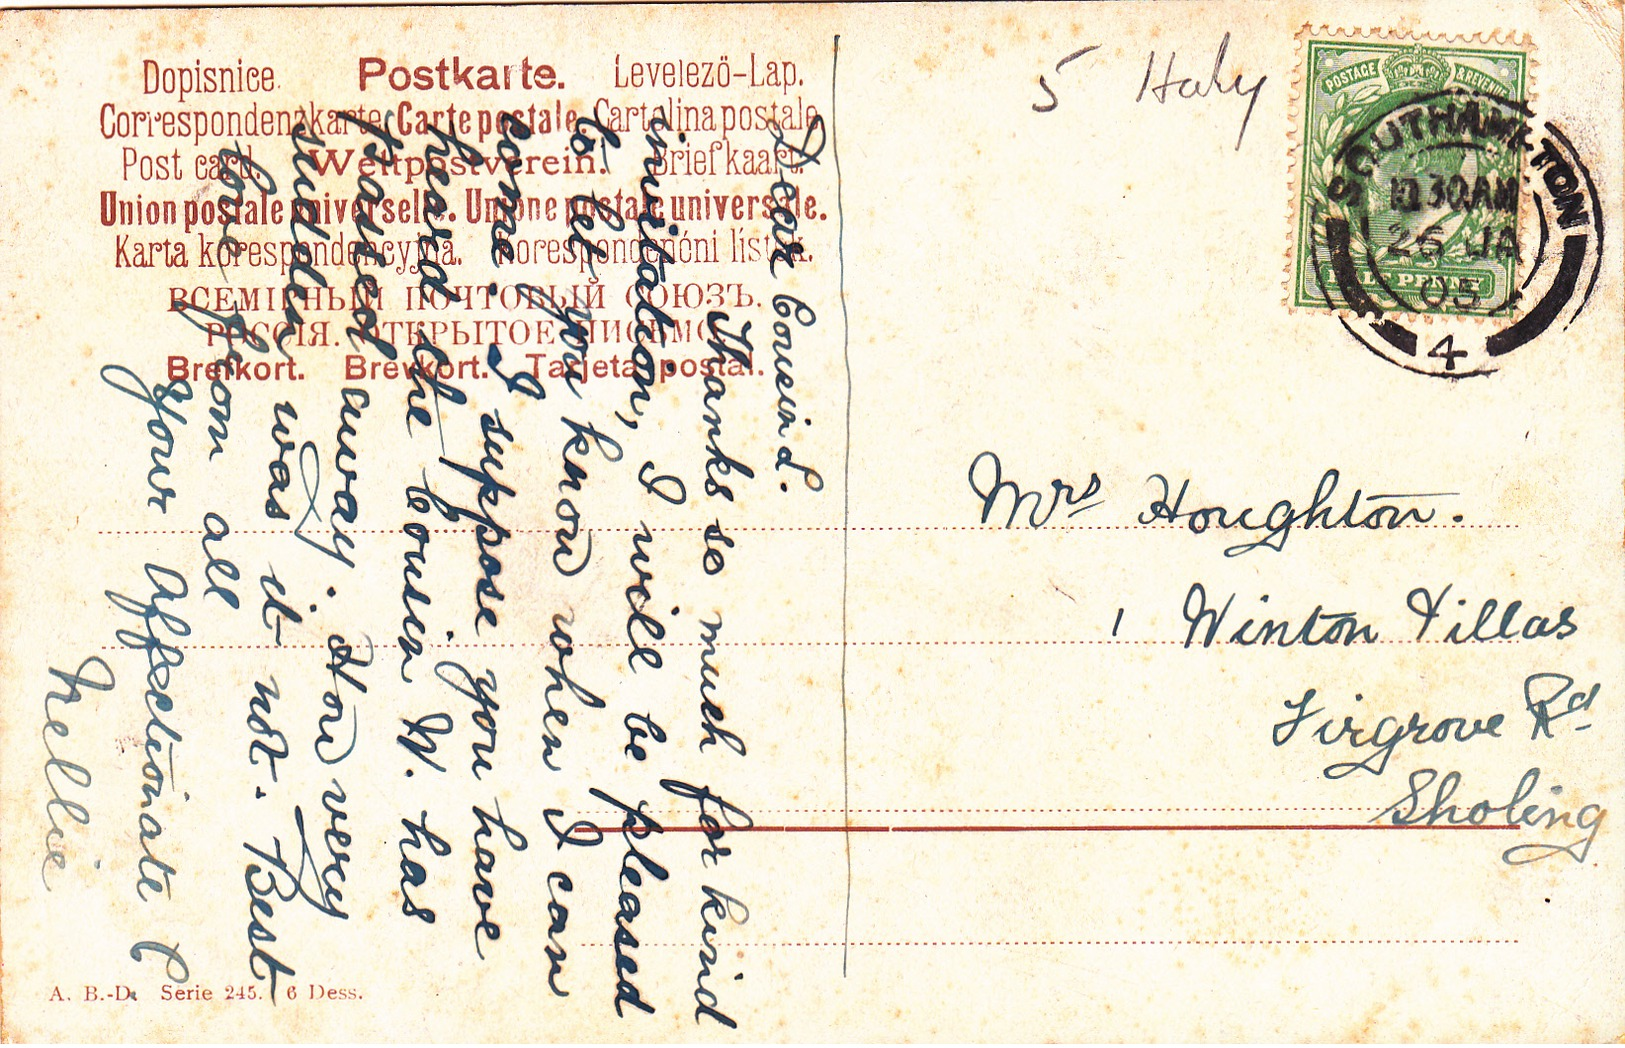 Dopisnice. Postkarte. Levelező-Lap.
Correspondenzkarte. Carte postale. Cartolina postale
Post card. Weltpostverein. Briefkaart.
Union postale universelle. Unione postale universale.
Karta korespondencyjna. Korespondenční lístek.
ВСЕМІРНЫЙ ПОЧТОВЫЙ СОЮЗЪ.
РОССІЯ. ОТКРЫТОЕ ПИСЬМО.
Brefkort. Brevkort. Tarjeta postal.
Dear Cousin L.
Thanks so much for kind
invitation, I will be pleased
to let you know when I can
come. I suppose you have
heard the Cousin W. has
Passed away. How very
sudden was it not. Best
love from all
Your Affectionate C
Nellie
A. B.-D. Serie 245. 6 Dess.
5 Italy
POSTAGE & REVENUE
HALFPENNY
SOUTHAMPTON
10 30AM
26 JA
05
4
Mrs Houghton.
1 Winton Villas
Firgrove Rd
Sholing